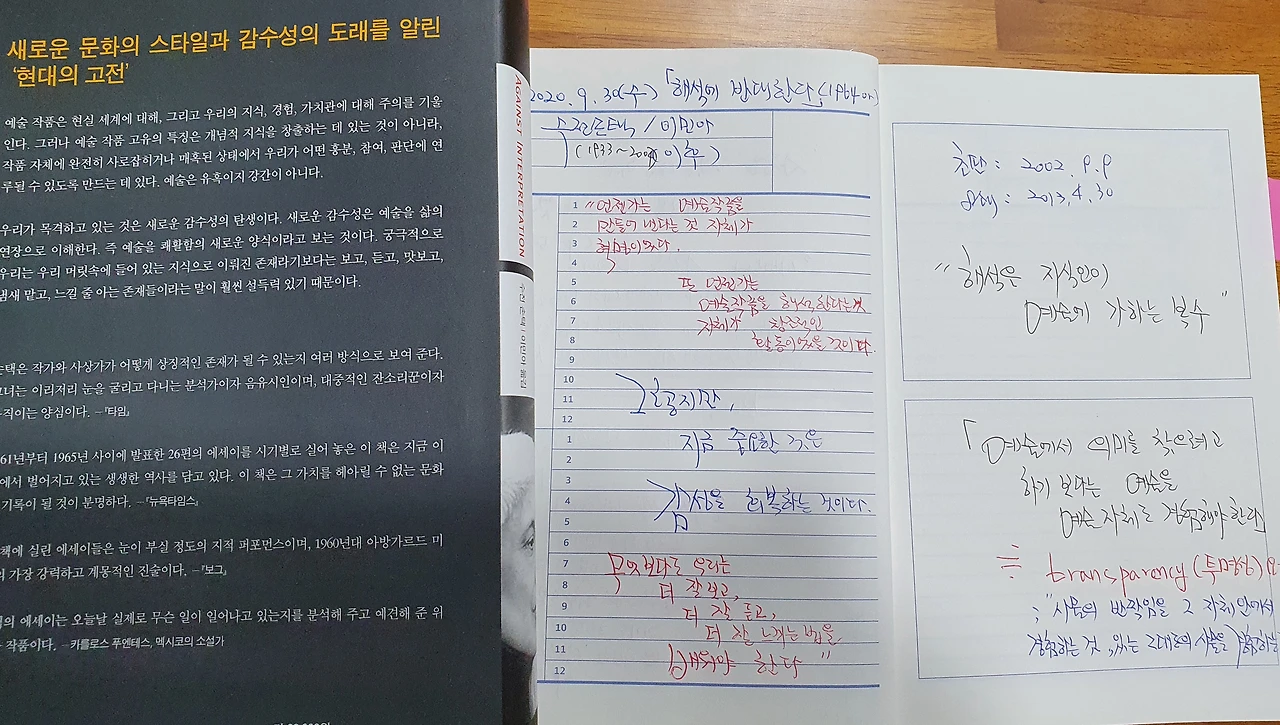 새로운 문화의 스타일과 감수성의 도래를 알린
‘현대의 고전’
예술 작품은 현실 세계에 대해, 그리고 우리의 지식, 경험, 가치관에 대해 주의를 기울
인다. 그러나 예술 작품 고유의 특징은 개념적 지식을 창출하는 데 있는 것이 아니라,
작품 자체에 완전히 사로잡히거나 매혹된 상태에서 우리가 어떤 흥분, 참여, 판단에 연
루될 수 있도록 만드는 데 있다. 예술은 유혹이지 강간이 아니다.
우리가 목격하고 있는 것은 새로운 감수성의 탄생이다. 새로운 감수성은 예술을 삶의
연장으로 이해한다. 즉 예술을 쾌활함의 새로운 양식이라고 보는 것이다. 궁극적으로
우리는 우리 머릿속에 들어 있는 지식으로 이뤄진 존재라기보다는 보고, 듣고, 맛보고,
냄새 맡고, 느낄 줄 아는 존재들이라는 말이 훨씬 설득력 있기 때문이다.
손택은 작가와 사상가가 어떻게 상징적인 존재가 될 수 있는지 여러 방식으로 보여 준다.
그녀는 이리저리 눈을 굴리고 다니는 분석가이자 음유시인이며, 대중적인 잔소리꾼이자
움직이는 양심이다. –『타임』
61년부터 1965년 사이에 발표한 26편의 에세이를 시기별로 실어 놓은 이 책은 지금 이
에서 벌어지고 있는 생생한 역사를 담고 있다. 이 책은 그 가치를 헤아릴 수 없는 문화
기록이 될 것이 분명하다. –『뉴욕타임스』
책에 실린 에세이들은 눈이 부실 정도의 지적 퍼포먼스이며, 1960년대 아방가르드 미
의 가장 강력하고 계몽적인 진술이다. –『보그』
의 에세이는 오늘날 실제로 무슨 일이 일어나고 있는지를 분석해 주고 예견해 준 위
작품이다. –카를로스 푸엔테스, 멕시코의 소설가
AGAINST INTERPRETATION
수전 손택 | 이민아 옮김
2020. 9. 30(수) 「해석에 반대한다」(1964
수전손택 / 이민아
(1933~ 이후)
1 "언젠가는 예술작품을
2 만들어 낸다는 것 자체가
3 혁명이었다.
4
5 또 언젠가는
6 예술작품을 해석한다는 것
7 자체가 창조적인
8 활동이었을 것이다.
9
10
11 그로공지간,
12
1 지금 중요한 것은
2
3
4 감성을 회복하는 것이다.
5
6
7 무엇보다도 우리는
8 더 잘 보고,
9 더 잘 듣고,
10 더 잘 느끼는 법을
11 배워야 한다"
12
초판 : 2002. 9. 9
2013. 4. 30
"해석은 지식인이
예술에 가하는 복수"
「예술에서 의미를 찾으려고
하기 보다는 예술을
예술 자체로 경험해야 한다
≒ transparency(투명성)
; "사물의 반짝임을 그 자체 안에서
경험하는 것, 있는 그대로의 사물을 경험하는